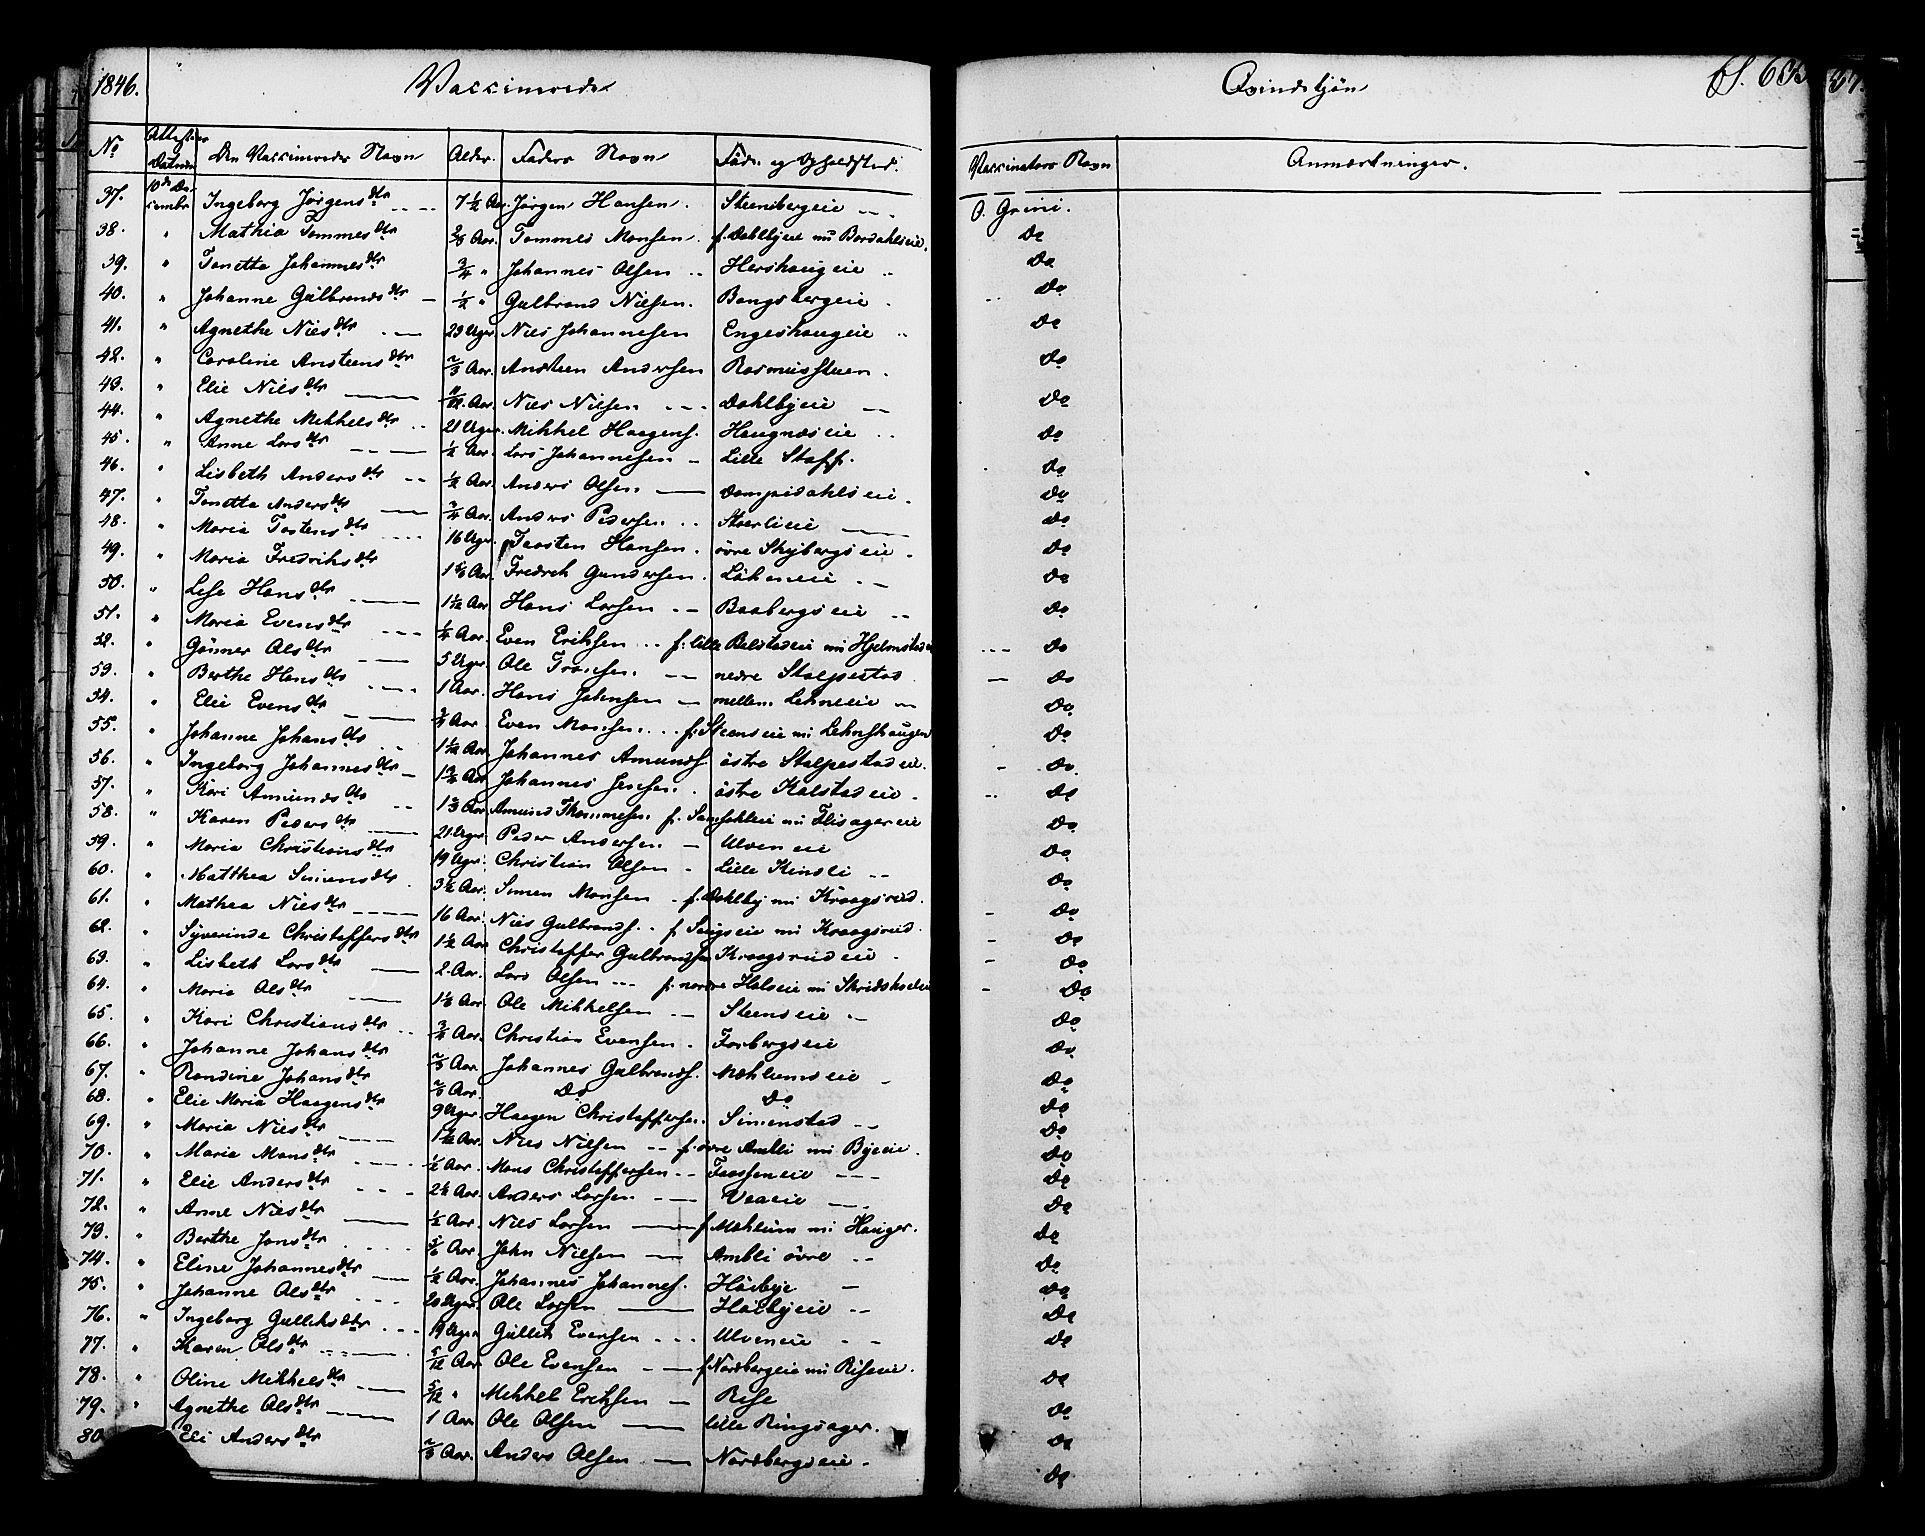 1846. Vaccinerede Qvindekjøn
No Attestens Datum Den Vaccineredes Navn Alder. Faders Navn Føde- og Opholdssted. Vaccinators Navn Anmærkninger.
37. 10de December Ingeborg Jørgensdtr 7 1/2 Aar. Jørgen Hansen. Steensbergeie O. Grini.
38. " Mathia Tommesdtr Aar. Tommes Monsen. f. Dahlbyeie nu Bordahlseie. Do
39. " Tonetta Johannesdtr 3/4 " Johannes Olsen Hershougeie Do
40. " Johanne Gulbrandsdtr 1/2 " Gulbrand Nielsen. Bangsbergeie. Do
41. " Agnethe Nielsdtr 23 Uger Niels Johannesen Engeshougeie Do
42. " Caroline Anstensdtr 2/3 Aar. Ansteen Andersen Rasmusstuen. Do
43. " Elie Nielsdtr 11/12 Aar. Niels Nilsen Dahlbyeie Do
44. " Agnethe Mikkelsdtr 21 Uger. Mikkel Haagens. Haugnæseie Do
45. " Anne Larsdtr 1/2 Aar. Lars Johannesen Lille Staff. Do
46. " Lisbeth Andersdtr 1/2 Aar. Anders Olsen Dompidahlseie. Do
47. " Tonetta Andersdtr 3/4 Aar. Anders Pedersen Stoerlieie Do
48. " Maria Tostensdtr 16 Uger. Taasten Hansen. övre Skybergseie. Do
49. " Maria Fredriksdtr Aar. Fredrek Gundersen. Do
50. " Lise Hansdtr 1 1/2 Aar Hans Larsen Baabergseie Do
51. " Maria Evensdtr 1/4 Aar. Even Eriksen f. lille Belstadeie nu Hjelmstadeie Do
52. " Gunner Olsdtr 5 Uger. Ole nedre Stalpestad Do
53. " Berthe Hansdtr 1 Aar. Hans Johnsen mellem Lehneeie Do
54. " Elie Evensdtr 3/4 Aar. Even Monsen f. Steenseie nu Lehnshaugen Do
55. " Johanne Johansdtr Aar. Johannes Amunds. östre Stalpestadeie. Do
56. " Ingeborg Johannesdtr Aar Johannes Jensen. östre Kalstadeie. Do
57. " Kari Amundsdtr 1 2/3 Aar. Amund Thommesen. f. nu Flisagereie Do
58. " Karen Pedersdtr 21 Uger. Peder Andersen Ulveneie Do
59. " Maria Christiansdtr 19 Uger. Christian Olsen Lille Kinsli Do
60. " Matthea Simensdtr. 3 1/2 Aar. Simen Monsen f. Dahlby nu Kraagsrud. Do
61. " Mathea Nielsdtr 16 Aar. Niels Gulbrands. f. nu Kraagsrud. Do
62. " Syverinde Christoffersdtr 1 1/2 Aar Christoffer Gulbrandsen Kraagsrudeie Do
63. " Lisbeth Larsdtr 2. Aar. Lars Olsen f. nordre Halseie nu Do
64. " Maria Olsdtr Aar. Ole Mikkelsen Steenseie Do
65. " Kari Christiansdtr 3/4 Aar. Christian Evensen. Forbergseie Do
66. " Johanne Johansdtr 2/3 Aar. Johannes Gulbrands. Mæhlumseie Do
67. " Randine Johansdtr 2/3 Aar. Do Do Do
68. " Elie Maria Haagensdtr 9 Uger. Haagen Christoffersen. Simenstad Do
69. " Maria Nielsdtr Aar. Niels Nilsen f. övre Ambli nu Byeeie. Do
70. " Maria Monsdtr 1/2 Aar. Mons Christoffersen Do
71. " Elie Andersdtr 2 1/2 Aar. Anders Larsen Do
72. " Anne Nielsdtr 1/2 Aar. Niels Larsen f. Mæhlum nu Hauger. Do
73. " Berthe Jonsdtr Aar. John Nilsen Ambli övre Do
74. " Eline Johannesdtr 1/2 Aar. Johannes Johannes. Höebye Do
75. " Johanne Olsdtr 20 Uger. Ole Larsen Höebyeie Do
76. " Ingeborg Gulleksdtr 19 Uger Gullek Evensen Ulveneie Do
77. " Karen Olsdtr 5/12 Aar. Ole Evensen f. Nordbergeie nu Riseeie. Do
78. " Oline Mikkelsdtr 5/12 " Mikkel Eriksen Rise Do
79. " Agnethe Olsdtr 1 Aar. Ole Olsen lille Ringsager. Do
80 Eli Andersdtr 2/3 Aar. Anders Olsen Nordbergseie. Do